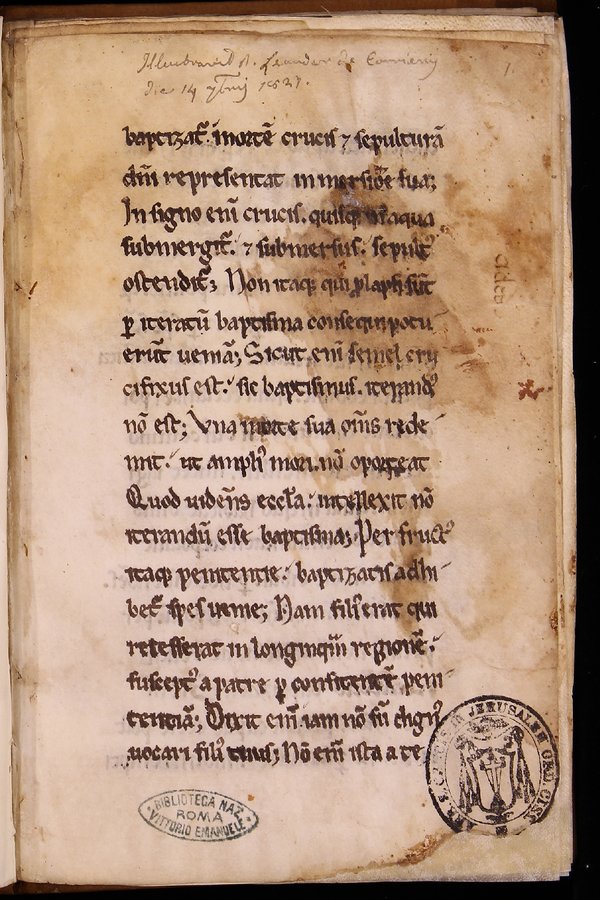 die 14
1.
baptizat̃. in mortẽ crucis ⁊ sepulturã
dñi representat in mersiõe sua;
In signo eni᷈ crucis. quisq; in aqua
submergit̃. ⁊ submersus. sepult᷒
ostendit̃; Non itaq; qui ꝓlapsi sũt
ꝑ iteratũ baptisma consequi potu-
erũt ueniã; Sicut eni᷈ semel cru
cifixus est. sic baptismus. iterand᷒
nõ est; Vna morte sua om̃s rede-
mit. ut ampli᷒ mori nõ oporteat
Quod uidẽns eccl̃a. intellexit nõ
iterandũ esse baptisma; Per fruct᷒
itaq; penitentie. baptizatis adhi-
bet᷒ spes uenie; Nam fili᷒ erat qui
recesserat in longinquã regionẽ.
suscept᷒ a patre ꝑ confitentẽ peni-
tentiã; Dixit eni᷈ iam nõ sũ dign᷒
uocari fili᷒ tuus; Nõ eni᷈ ista a te
BIBLIOTECA NAZ.
ROMA
VITTORIO EMANUELE
JERUSALEM ORD. CIST.